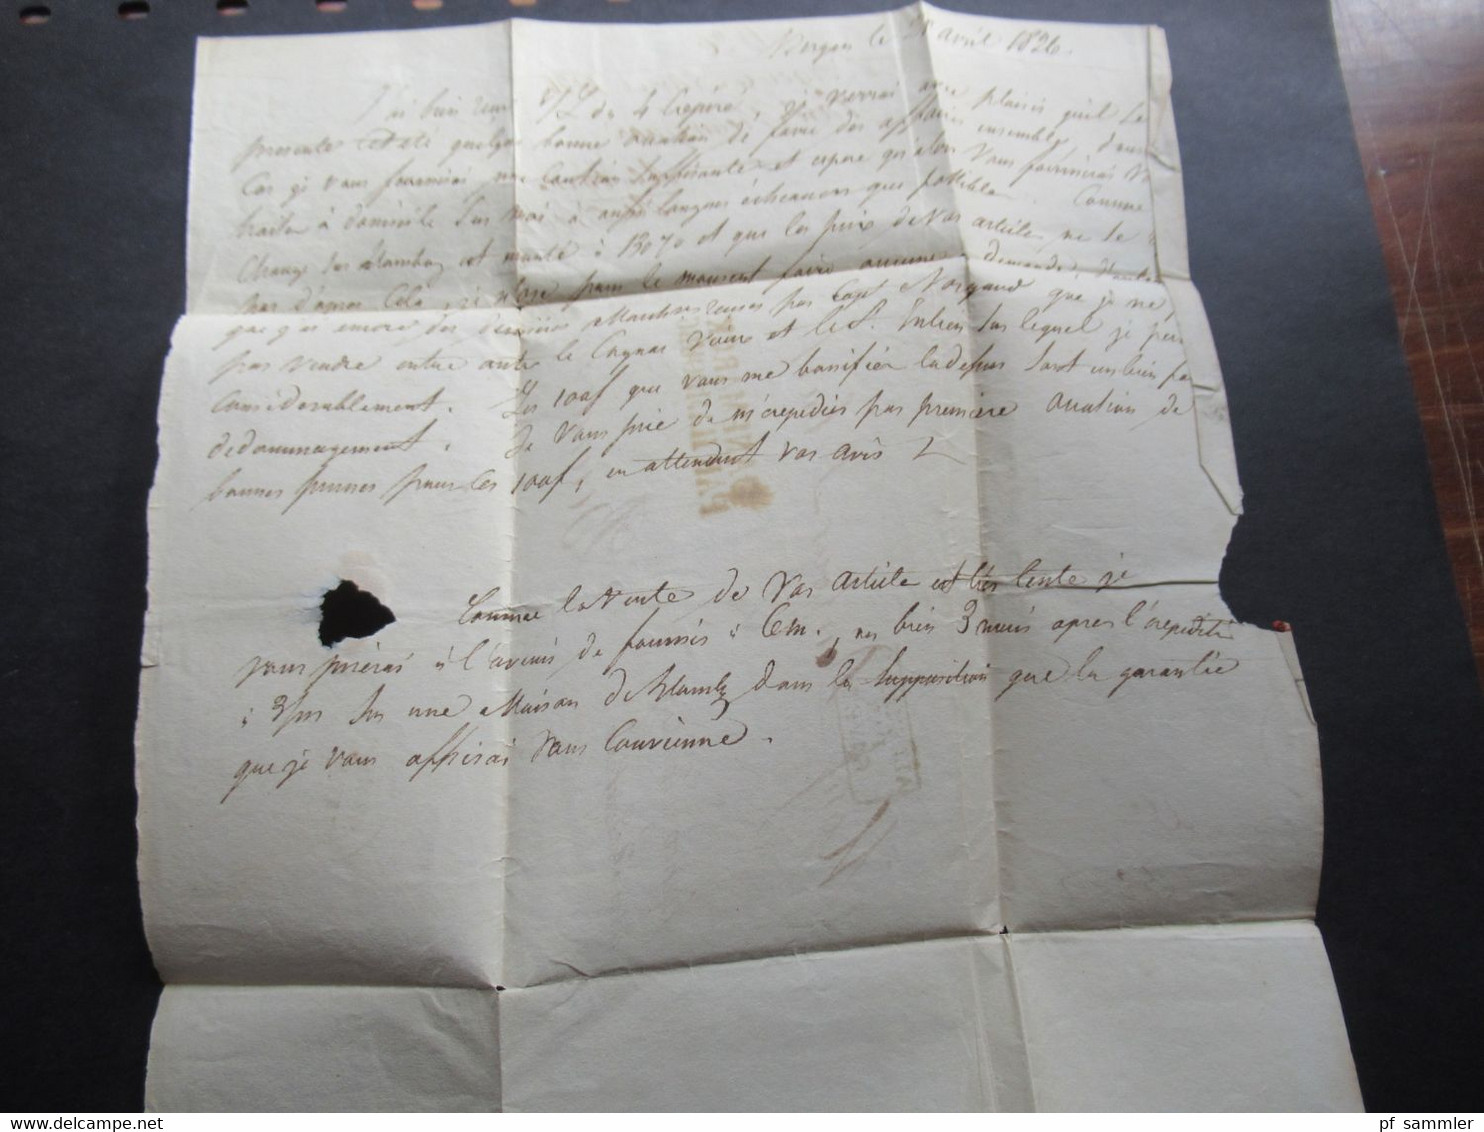 Bergen le 28 avril 1826.
J'ai bien reçu V/L du 4 je verrai avec plaisir qu'il se
présente cet été quelque bonne occasion de faire des affaires ensemble, dans
Cas je vous fournirai une Caution suffisante et espere qu'alors Vous fournirez
traiter à domicile sur moi à aussi longues échéances que possible. Comme
Change sur Hambg est monté à et que les prix de Vos articles ne le
pas d'apres Cela, je n'ose pour le moment faire aucune demande,
que j'ai encore des dernières Marchandises par Capt Norgaard que je ne
pas vendre entre autre le Cognac Vieux et le St. sur lequel je perd
Considerablement. Les 100f que vous me bonifiez ladessus sont un bien
dedommagement. Je Vous prie de m'expedier par première occasion de
bonnes prunes pour les 100f, en attendant vos avis
Comme la Vente de Vos article est très lente je
vous prierai à l'avenir de fournir à 6m., ou bien 3 mois apres l'expedition
à 3m sur une Maison de Hambg dans la Supposition que la garantie
que je vous offrirai Vous Convienne.
pf sammler